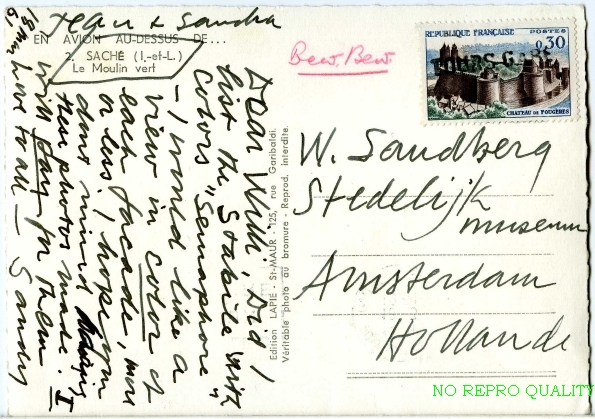 Jean & Sandra
EN AVION AU-DESSUS DE...
2. SACHÉ (I.-et-L.)
Le Moulin vert
18 Mar
61
Dear Willi, Did I
the Stabile with
colors "Semaphore
– I would like a
view in color of
each facade, more
or less. I hope you
dont mind having
these photos made. I
will pay for them
best to all – Sandy
Edition LAPIE - St-MAUR - 125, rue Garibaldi.
Véritable photo au bromure - Reprod. interdite.
Bew. Bew.
REPUBLIQUE FRANÇAISE POSTES
0,30
TOURS-G
CHATEAU DE FOUGÈRES
W. Sandberg
Stedelijk
museum
Amsterdam
Hollande
NO REPRO QUALITY